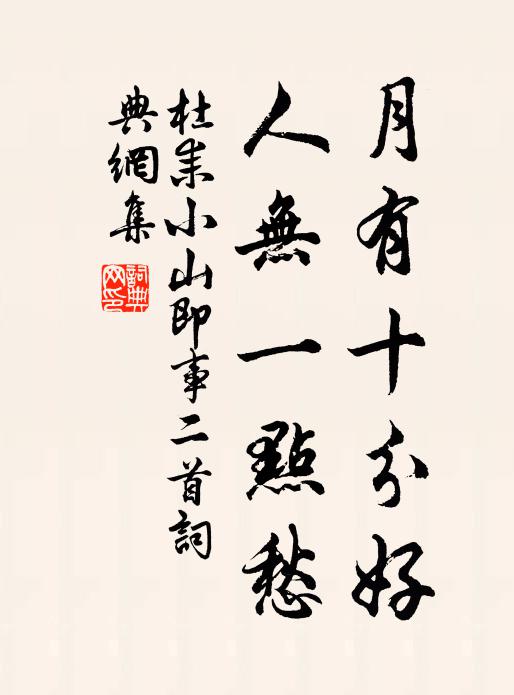 月有十分好
人無一點愁
杜耒小山即事二首詞
典網集
詞典
网印